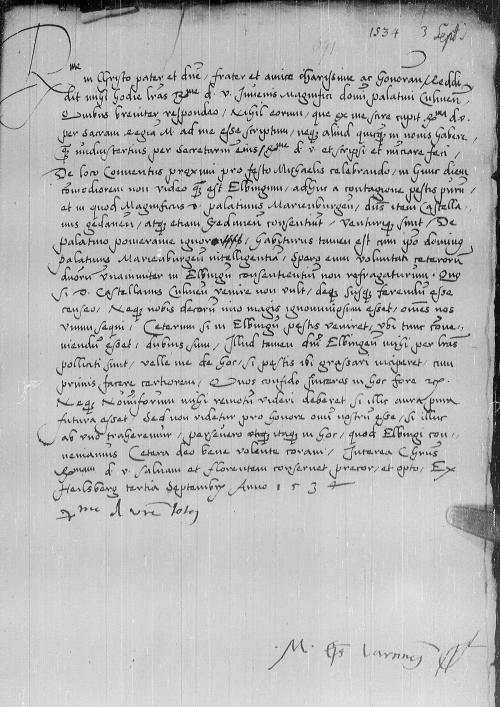 1534 3 Septris
R^me
in Christo pater et dne, frater et amice charissime ac honoran, Reddi
dit mihi hodie lras R^me d. v. Iuvenis Magnifici domini palatini Culmen
Quibus breviter respondeo, Nihil eorum, que ex me scire cupit R^ma d. v.
per Sacram Regia M. ad me esse scriptum, neq aliud quicq in novis habere
q nudiustertius per Secretarium eius R^me d v et scripsi et nunciare feci,
De loco Conventus proximi pro festo Michaelis celebrando, in hunc diem
comodiorem non video q est Elbingum, adhuc a contagione pestis puru,
et in quod Magnificus d. palatinus Marienburgen, dns item Castella
nus gedanen, atq etiam Gedanen consentiunt, venturiq sunt, De
palatino pomeranie ignoro, habiturus tamen est cum ipo domino
palatinus Marienburgen intelligentia, Spero eum voluntati ceterorum
duorum unanimiter in Elbingum consentientium non refragaturum, Quo
si d. Castellanus Culmen venire non vult, deq susq ferendum esse
censeo, Neq nobis decorum imo magis ignominiosum esset, omes nos
unum sequi, Ceterum si in Elbingum pestis veniret, ubi tunc conve
niendum esset, dubius sum, Illud tamen dni Elbingen mihi per lras
polliciti sunt, velle me de hoc, si pestis ibi grassari inciperet, cum
primis facere certiorem, Quos confido sinceros in hoc fore etc.
Neq Noviforum mihi remotum videri deberet si illic aura pura
futura esset, Sed non videtur pro honore omnium nostrum esse, si illuc
ab uno traheremur, persevero itaq in hoc, quod Elbingi con
veniamus Cetera deo bene volente coram, Interea Christus
R^mam d. v. salvam et florentem conservet precor, et opto, Ex
Heilsberg tertia Septembris Anno 1534
R^me d vre totus
M. Eps Varmien